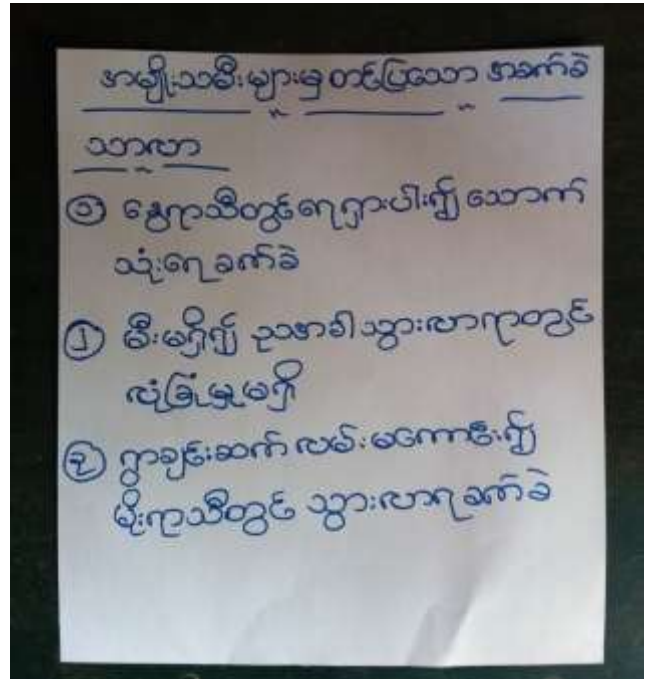 အမျိုးသမီးများမှ တင်ပြသော အခက်ခဲ
သာလာ
၁ နွေရာသီတွင် ရေရှားပါး၍ သောက်
သုံးရေ ခက်ခဲ
၂ မီးမရှိ၍ ညအခါ သွားလာရာတွင်
လုံခြုံမှုမရှိ
၃ ရွာချင်းဆက် လမ်းမကောင်း၍
မိုးရာသီတွင် သွားလာရ ခက်ခဲ